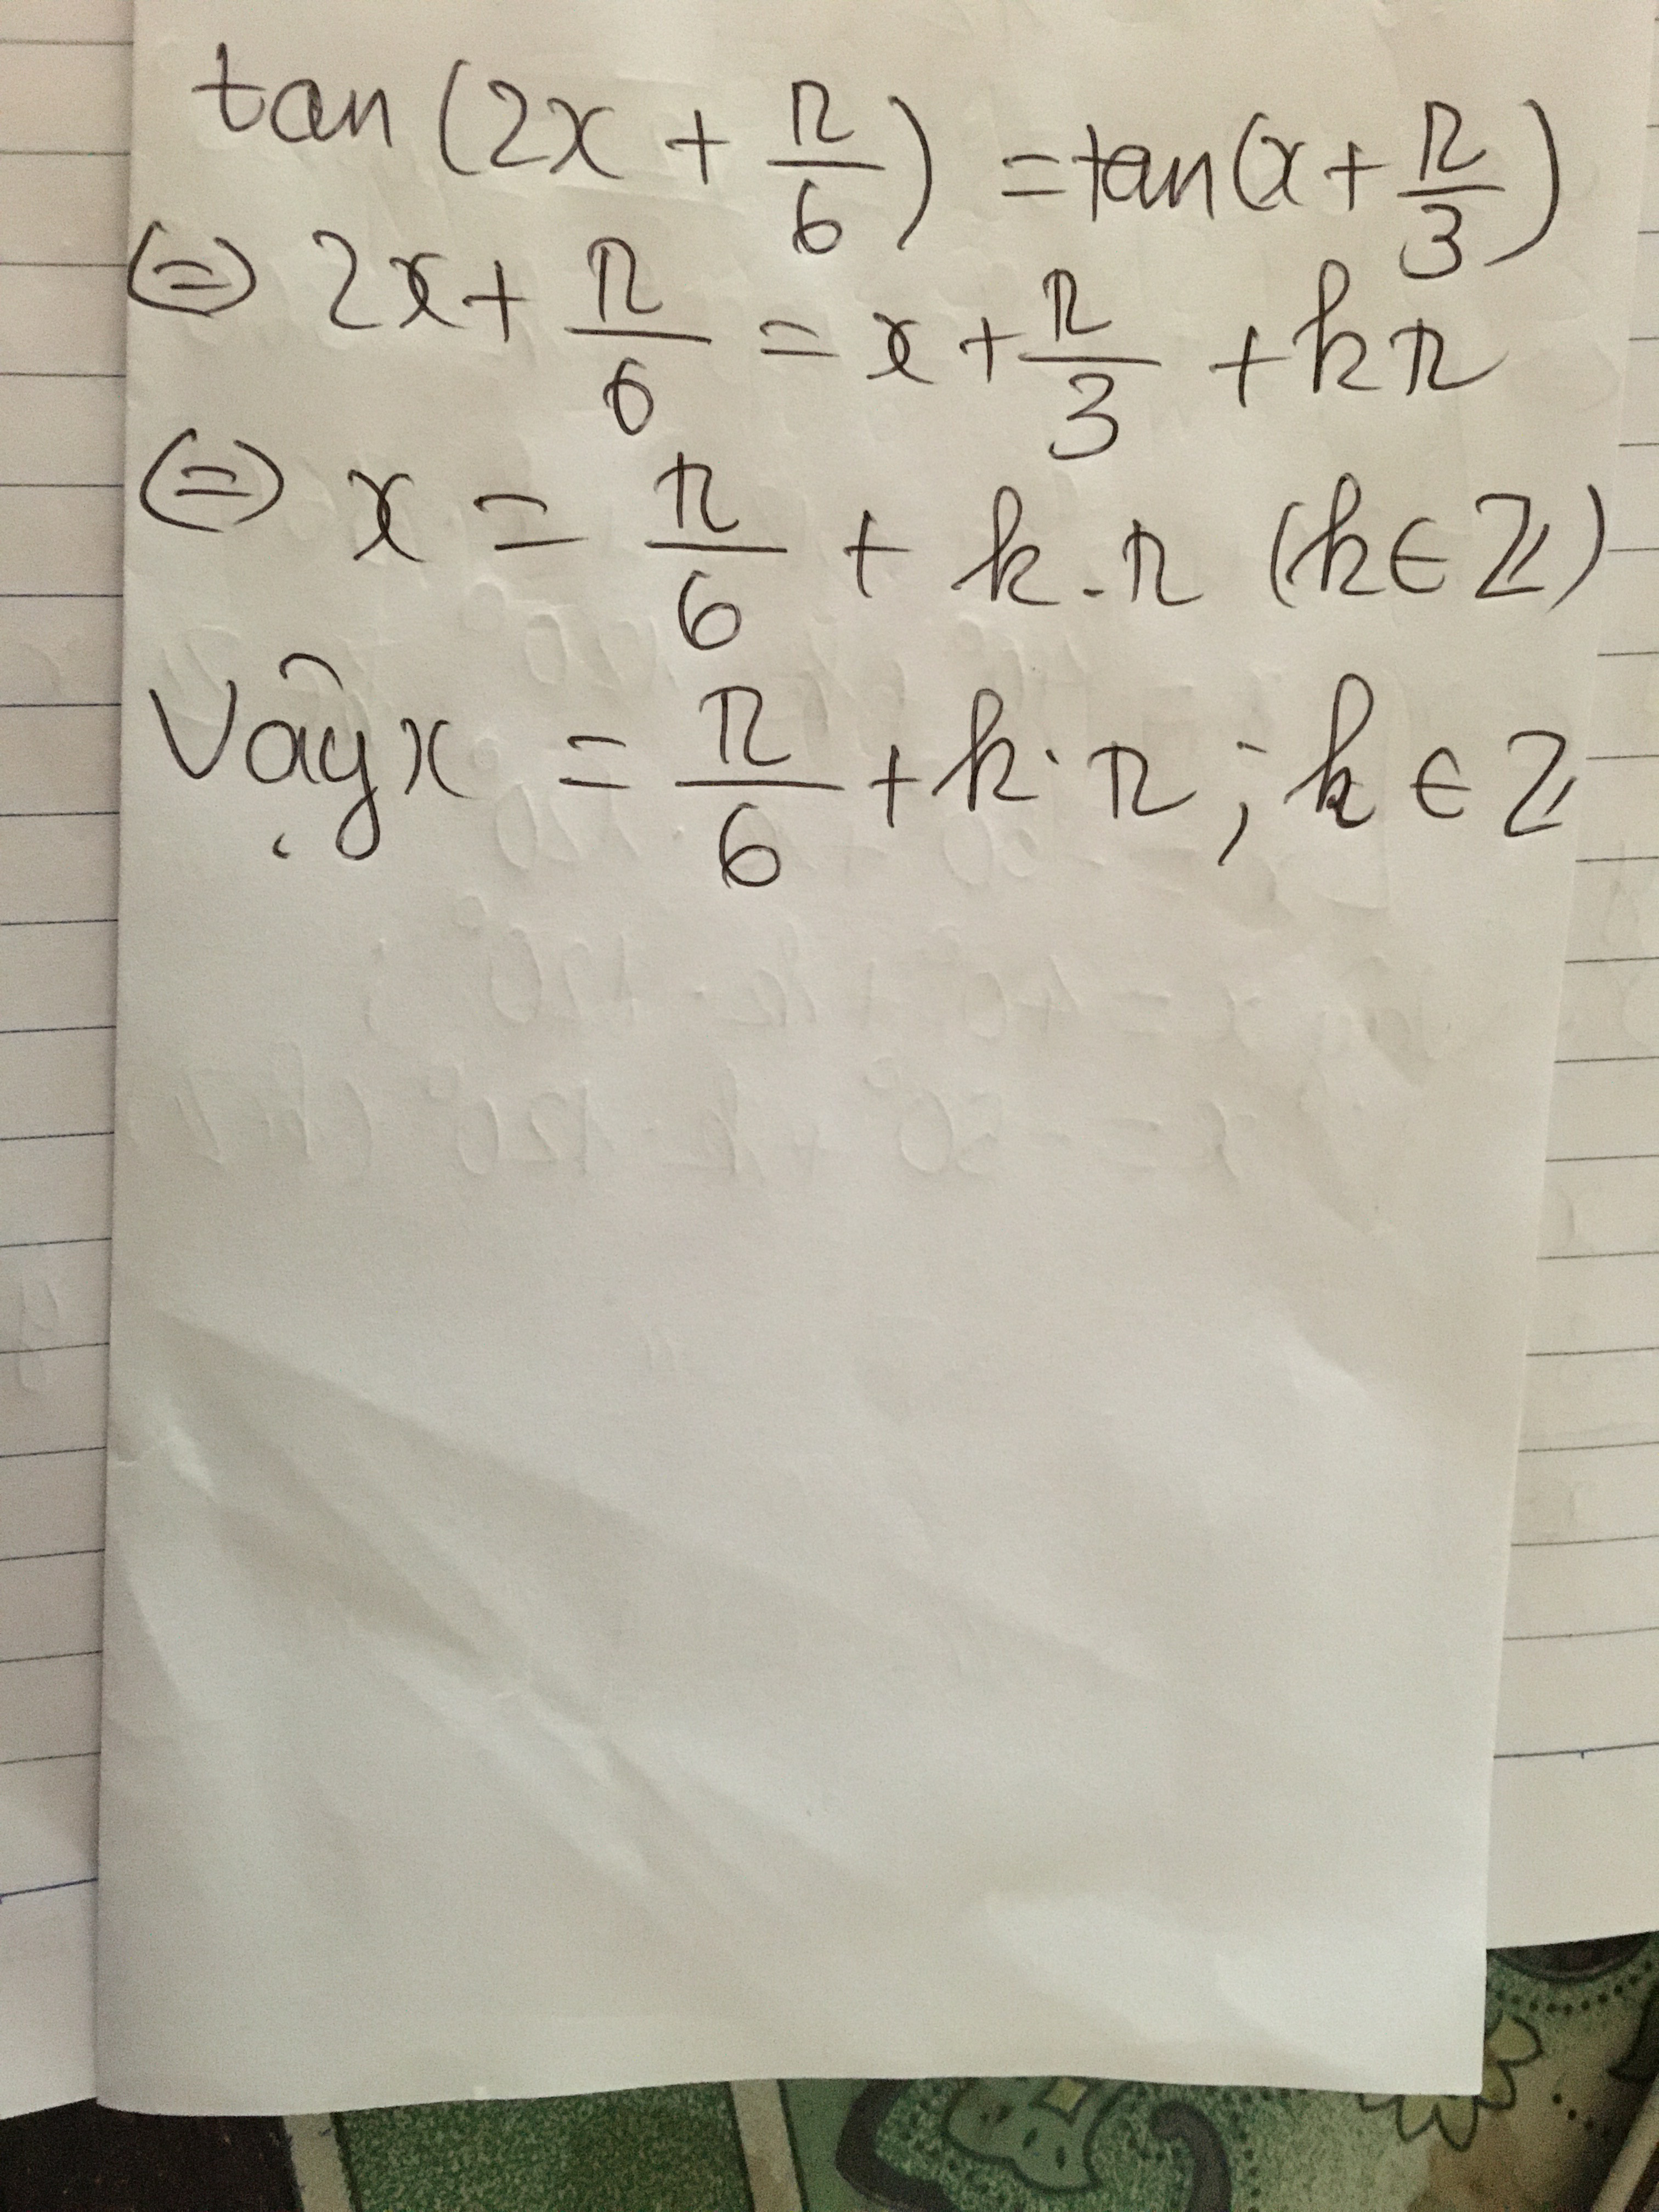 tan (2x + π/6) = tan(x + π/3)
(=) 2x + π/6 = x + π/3 + kπ
(=) x = π/6 + k.π (k ∈ ℤ)
Vậy x = π/6 + k.π ; k ∈ ℤ